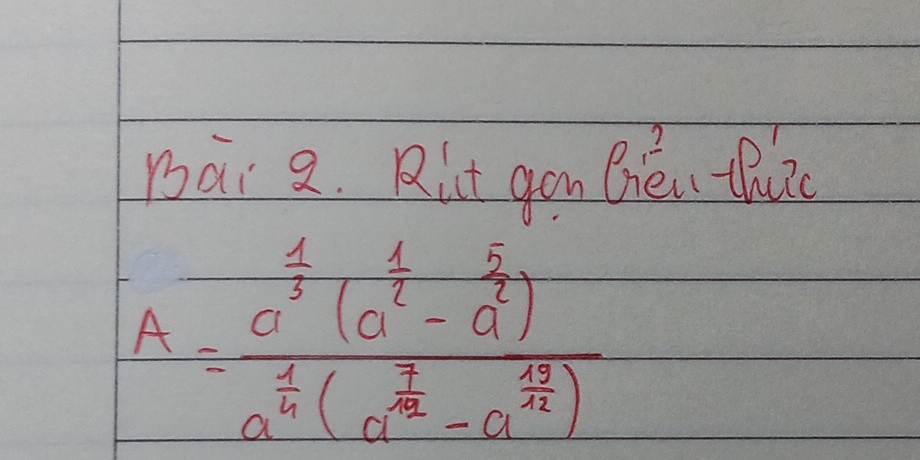 Bài 2. Rút gọn biểu thức
A = \frac{a^{\frac{1}{3}} (a^{\frac{1}{2}} - a^{\frac{5}{2}})}{a^{\frac{1}{4}} (a^{\frac{7}{12}} - a^{\frac{19}{12}})}